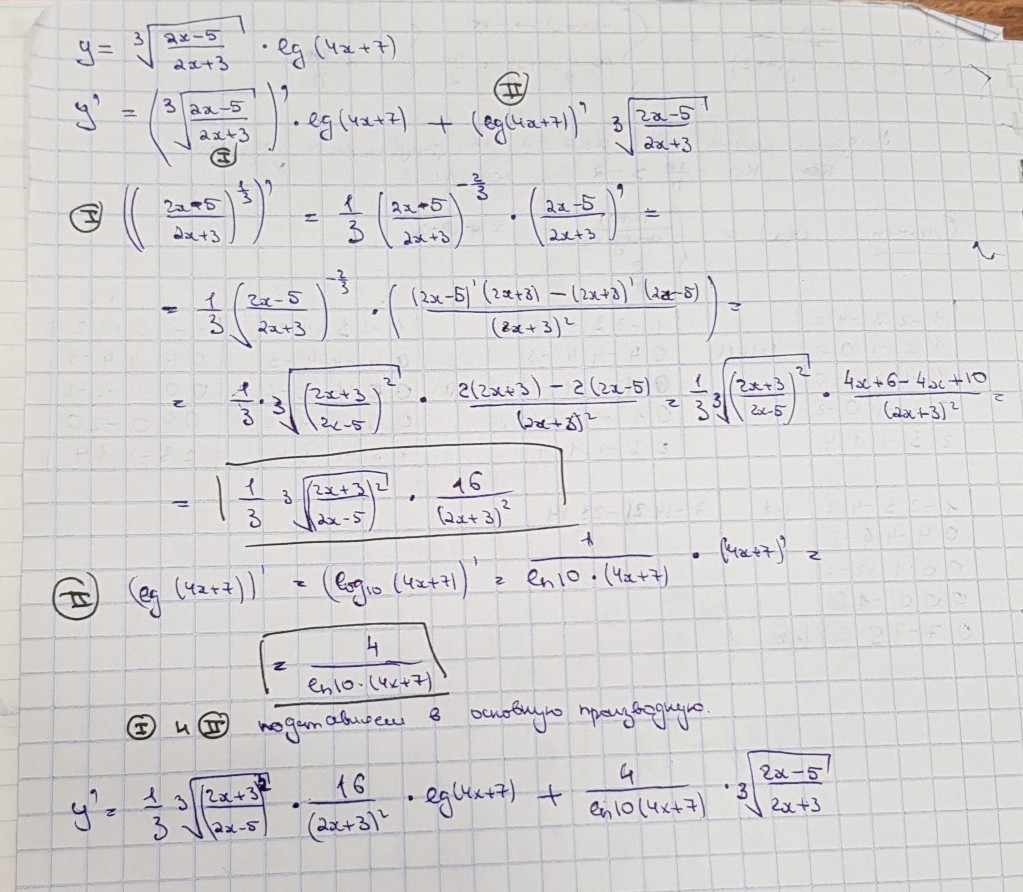 y = ∛((2x-5)/(2x+3)) · lg(4x+7)
II
y' = (∛((2x-5)/(2x+3)))' · lg(4x+7) + (lg(4x+7))' ∛((2x-5)/(2x+3))
I
I (((2x-5)/(2x+3))^(1/3))' = 1/3 ((2x-5)/(2x+3))^(-2/3) · ((2x-5)/(2x+3))' =
= 1/3 ((2x-5)/(2x+3))^(-2/3) · (((2x-5)'(2x+3) - (2x+3)'(2x-5))/(2x+3)²) =
= 1/3 · ∛(((2x+3)/(2x-5))²) · (2(2x+3) - 2(2x-5))/(2x+3)² = 1/3 ∛(((2x+3)/(2x-5))²) · (4x+6-4x+10)/(2x+3)² =
= 1/3 ∛(((2x+3)/(2x-5))²) · 16/(2x+3)²
II (lg(4x+7))' = (log₁₀(4x+7))' = 1/(ln10·(4x+7)) · (4x+7)' =
= 4/(ln10·(4x+7))
I и II подставляем в основную производную.
y' = 1/3 ∛(((2x+3)/(2x-5))²) · 16/(2x+3)² · lg(4x+7) + 4/(ln10(4x+7)) · ∛((2x-5)/(2x+3))